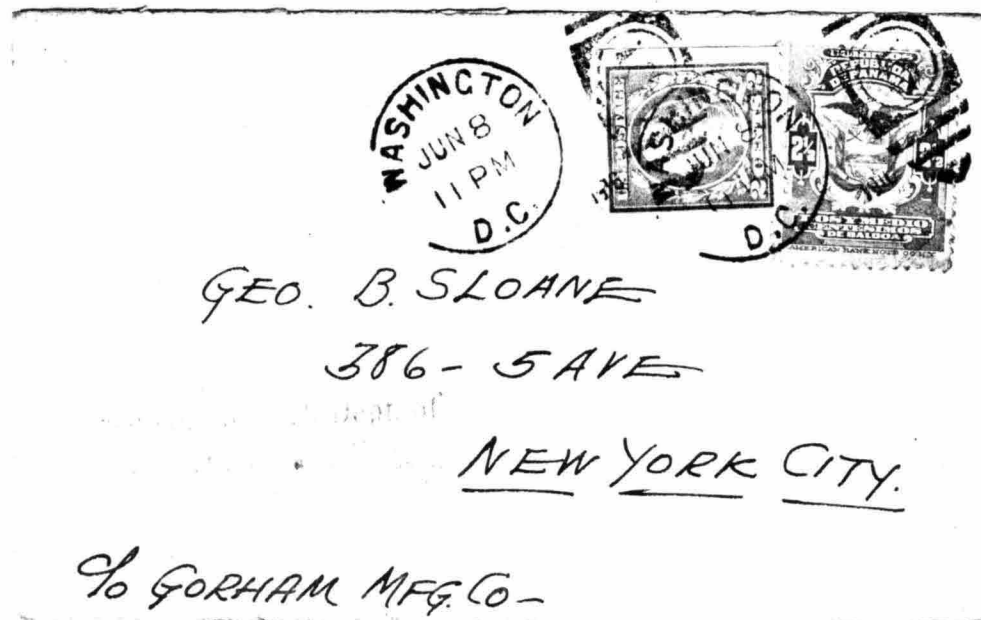 WASHINGTON
JUN 8
11 PM
D.C.
POSTAGE
2 CENTS 2
WASHINGTON
JUN 8
11 PM
D.C.
REPUBLICA
DE PANAMA
2½ 2½
DOS Y MEDIO
CENTESIMOS
DE BALBOA
AMERICAN BANK NOTE CO. N.Y.
GEO. B. SLOANE
386 - 5 AVE
NEW YORK CITY.
c/o GORHAM MFG. CO -